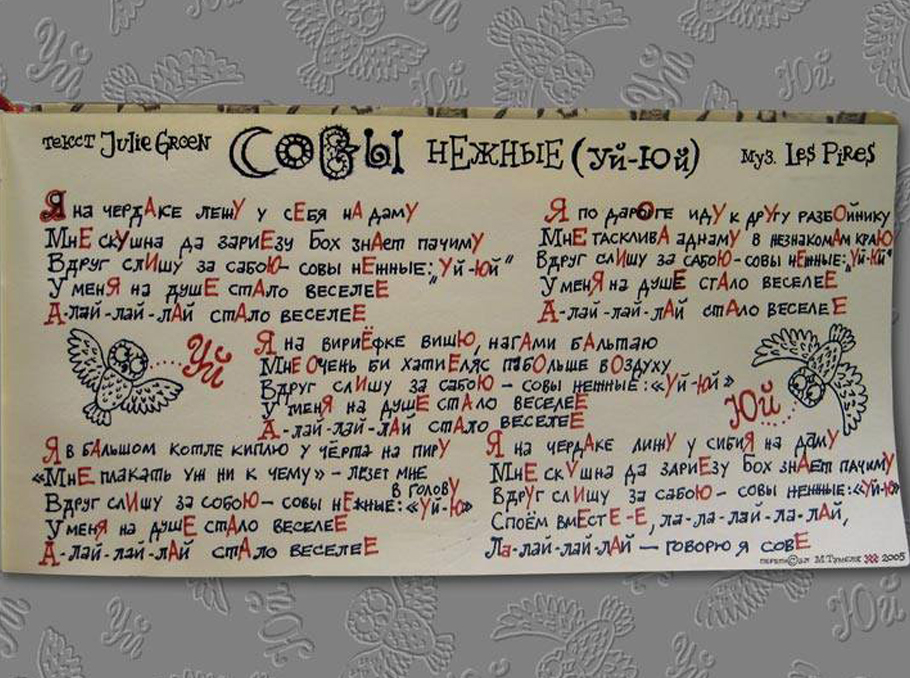 текст Julie Green СОВЫ НЕЖНЫЕ (УЙ-ЮЙ) муз. Les Pires
Я на чердАке лежУ у сЕбя нА дамУ
МнЕ скУшна да зариЕзу Бох знАет пачимУ
Вдруг слИшу за сабоЮ- совы нЕнные: "Уй-Юй"
У менЯ на душЕ стАло веселеЕ
А-лай-лай-лАй стАло веселеЕ
Я по дарОге идУ к дрУгу разбОйнику
МнЕ таскливА аднамУ в незнакомАм краЮ
Вдруг слИшу за сабоЮ-совы нЕнные: "Уй-Юй"
У менЯ на душЕ стАло веселеЕ
А-лай-лай-лАй стАло веселеЕ
Уй
Я на вириЁфке вишЮ, нагАми бАльтаю
МнЕ Очень би хатиЕляс пабОльше вОздуху
Вдруг слИшу за сабоЮ - совы нежные: «Уй-Юй»
У менЯ на душЕ стАло веселеЕ
А-лай-лай-лАй стАло веселеЕ
Юй
Я в бАльшом котле киплю у чЁрта на пирУ
«МнЕ плакать уж ни к чему» - лЕзет мне
в головУ
Вдруг слИшу за собоЮ- совы нЕжные: «Уй-Ю»
У менЯ на душЕ стАло веселеЕ
А-лай-лай-лАй стАло веселеЕ
Я на чердАке лижУ у сибиЯ на дамУ
МнЕ скУшна да зариЕзу Бох знАет пачимУ
ВдрУг слИшу за сабоЮ - совы нежные: «Уй-Ю»
Споём вмЕстЕ-Е, ла-ла-лай-ла-лАй,
Ла-лай-лай-лАй — говорю я совЕ
перепи©ал М.Тумеля 2005